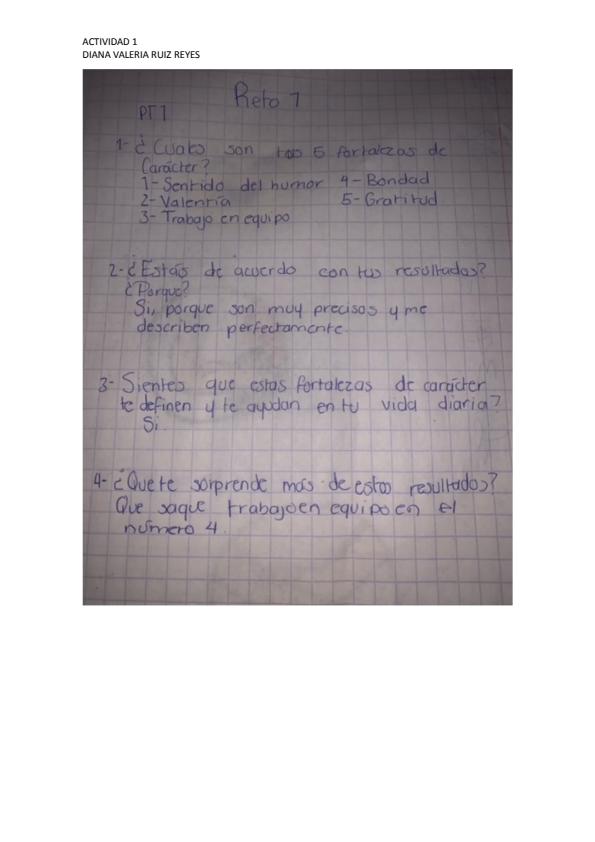 ACTIVIDAD 1
DIANA VALERIA RUIZ REYES
Reto 1
PT 1
1- ¿Cuales son tus 5 fortalezas de
Carácter?
1- Sentido del humor 4- Bondad
2- Valentía 5- Gratitud
3- Trabajo en equipo
2- ¿Estás de acuerdo con tus resultados?
¿Porque?
Si, porque son muy precisos y me
describen perfectamente.
3- Sientes que estas fortalezas de carácter
te definen y te ayudan en tu vida diaria?
Si.
4- ¿Que te sorprende más de estos resultados?
Que saque trabajo en equipo en el
número 4.